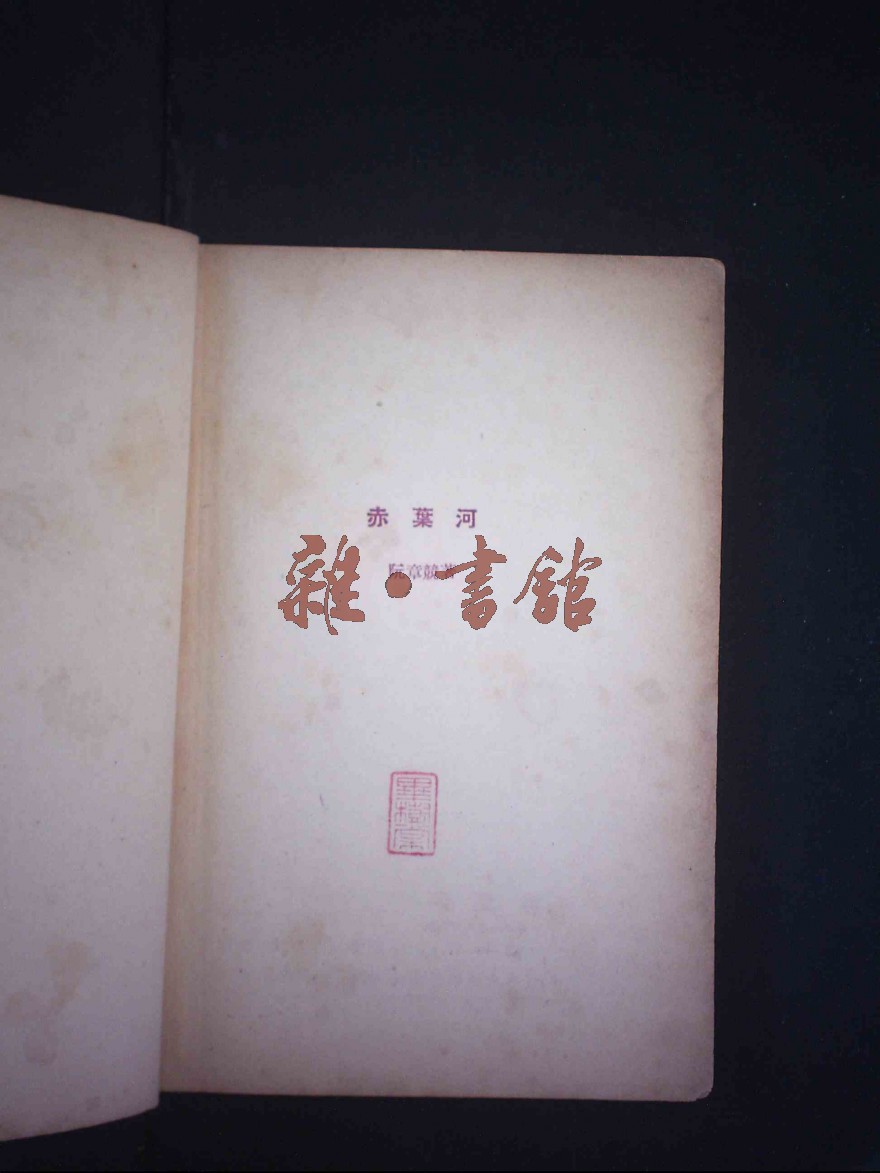 赤葉河
阮章競著
雜·書館